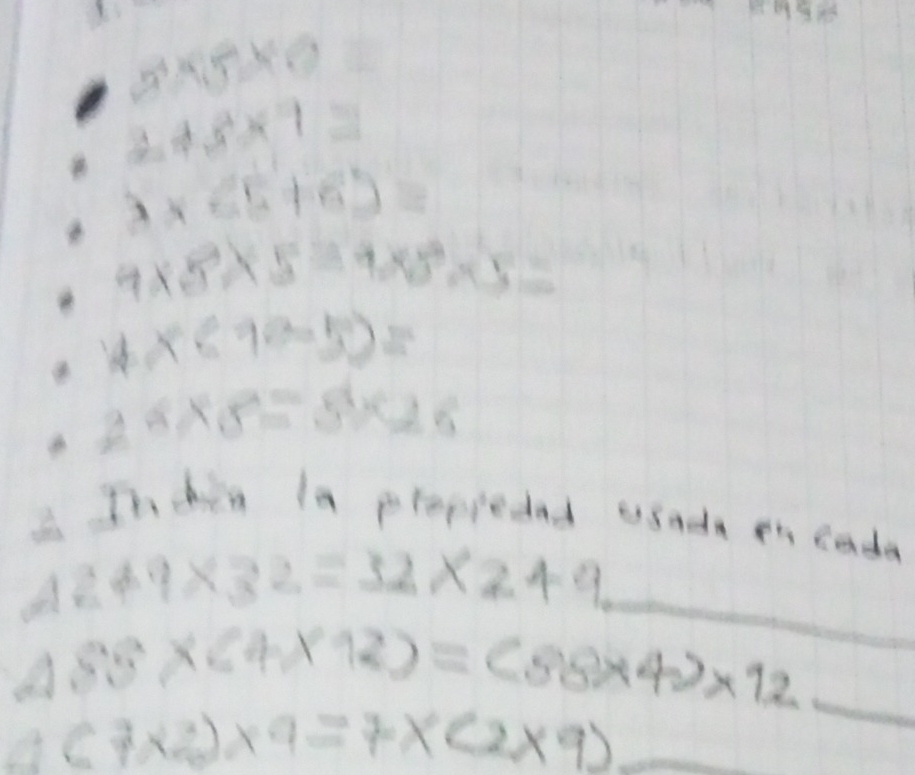 8×5×0=
248×1=
2×(5+6)=
9×8×5=9×8×5=
4×(10-5)=
26×8=8×26
Indica la propiedad usada en cada
249×32=32×249
88×(4×12)=(88×4)×12
(7×2)×9=7×(2×9)